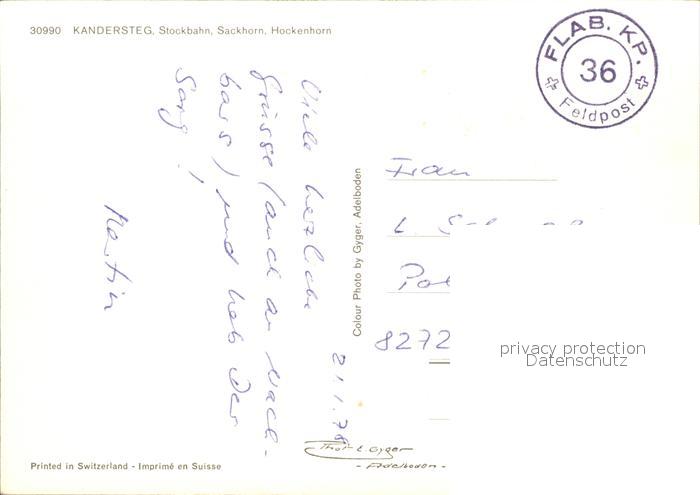 30990 KANDERSTEG, Stockbahn, Sackhorn, Hockenhorn
FLAB. KP.
36
Feldpost
21.1.78
Viele herzliche
Grüsse (auch an Nach-
bars) und heb Der
Sorg!
Martin
Colour Photo by Gyger, Adelboden
Frau
L.
8272
privacy protection
Datenschutz
Gyger
- Adelboden -
Printed in Switzerland - Imprimé en Suisse